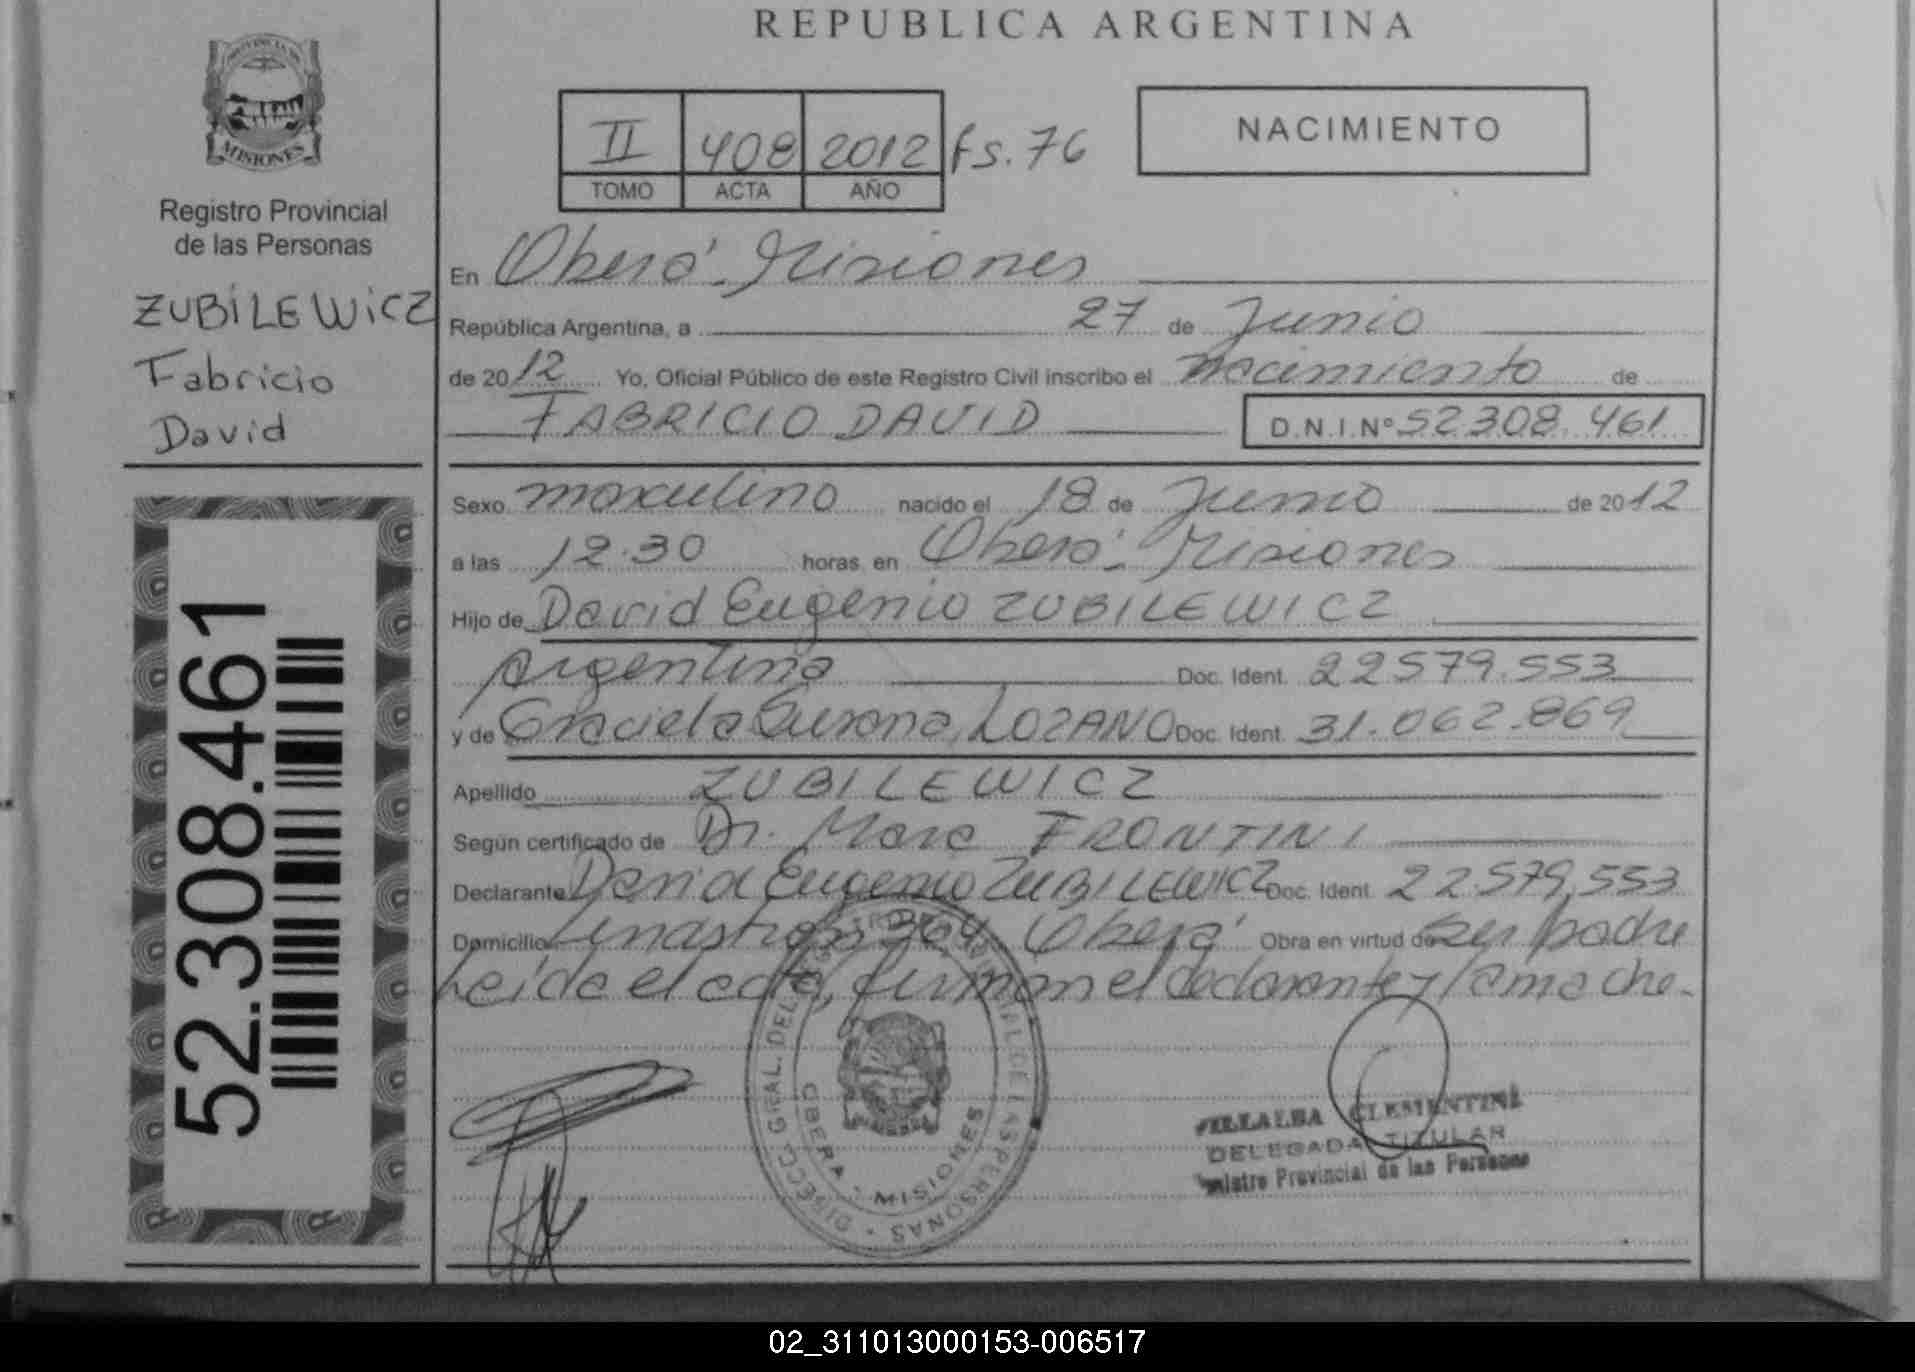 REPUBLICA ARGENTINA
PROVINCIA DE
MISIONES
Registro Provincial
de las Personas
ZUBILEWICZ
Fabricio
David
52.308.461
II 408 2012 fs. 76
TOMO ACTA AÑO
NACIMIENTO
En Oberá - Misiones
República Argentina, a 27 de Junio
de 2012 Yo, Oficial Público de este Registro Civil inscribo el nacimiento de
FABRICIO DAVID D.N.I.Nº 52.308.461
Sexo masculino nacido el 18 de Junio de 2012
a las 12.30 horas en Oberá - Misiones
Hijo de David Eugenio ZUBILEWICZ
argentino Doc. Ident. 22.579.553
y de Graciela Susana LOZANO Doc. Ident. 31.062.869
Apellido ZUBILEWICZ
Según certificado de Dr. Mara FRONTINI
Declarante David Eugenio ZUBILEWICZ Doc. Ident. 22.579.553
Domicilio 364 Oberá Obra en virtud de ser padre
Leída el acta, firman el declarante y la madre.-
DIRECC. GRAL. DEL REGISTRO PROVINCIAL DE LAS PERSONAS
OBERA - MISIONES
VILLALBA CLEMENTINA
DELEGADA TITULAR
Registro Provincial de las Personas
02_311013000153-006517